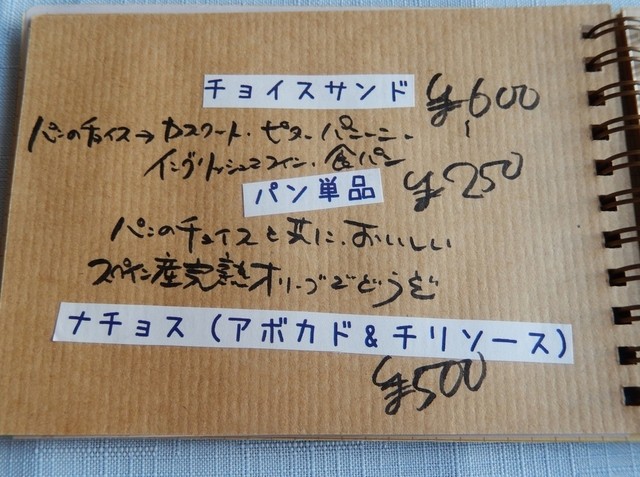 チョイスサンド ¥600〜
パンのチョイス→カスクート・ピタ・パニーニ・
イングリッシュマフィン・食パン
パン単品 ¥250
パンのチョイスと共に、おいしい
スペイン産完熟オリーブでどうぞ
ナチョス(アボカド&チリソース)
¥500